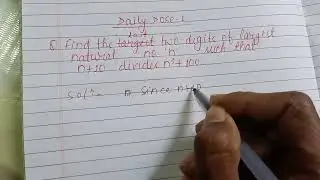 Daily Dose-1
last
Q Find the largest two digits of largest
natural no 'n' such that
n+10 divides n³+100
Solⁿ:- n since n+10